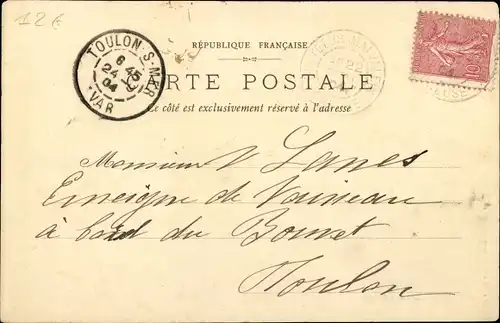 12€
RÉPUBLIQUE FRANÇAISE
CARTE POSTALE
Ce côté est exclusivement réservé à l'adresse
TOULON-S-MER
6 45
24
04
VAR
10
Monsieur V Lanes
Enseigne de Vaisseau
à bord du Bouvet
Toulon